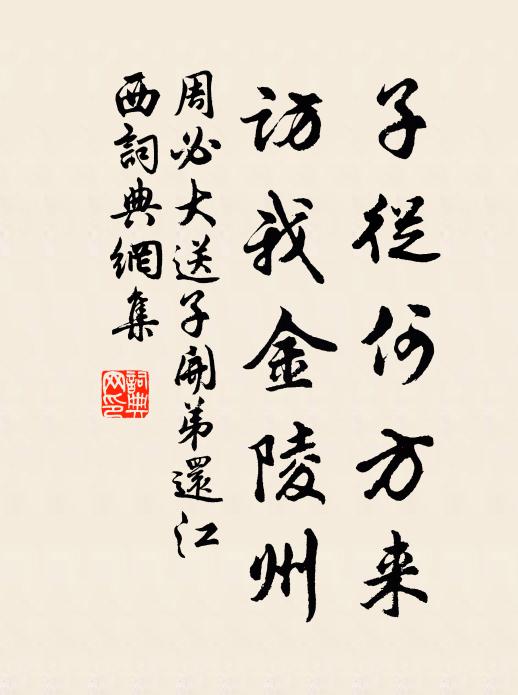 子從何方来
訪我金陵州
周必大送子開弟還江
西詞典網集
詞典
网印